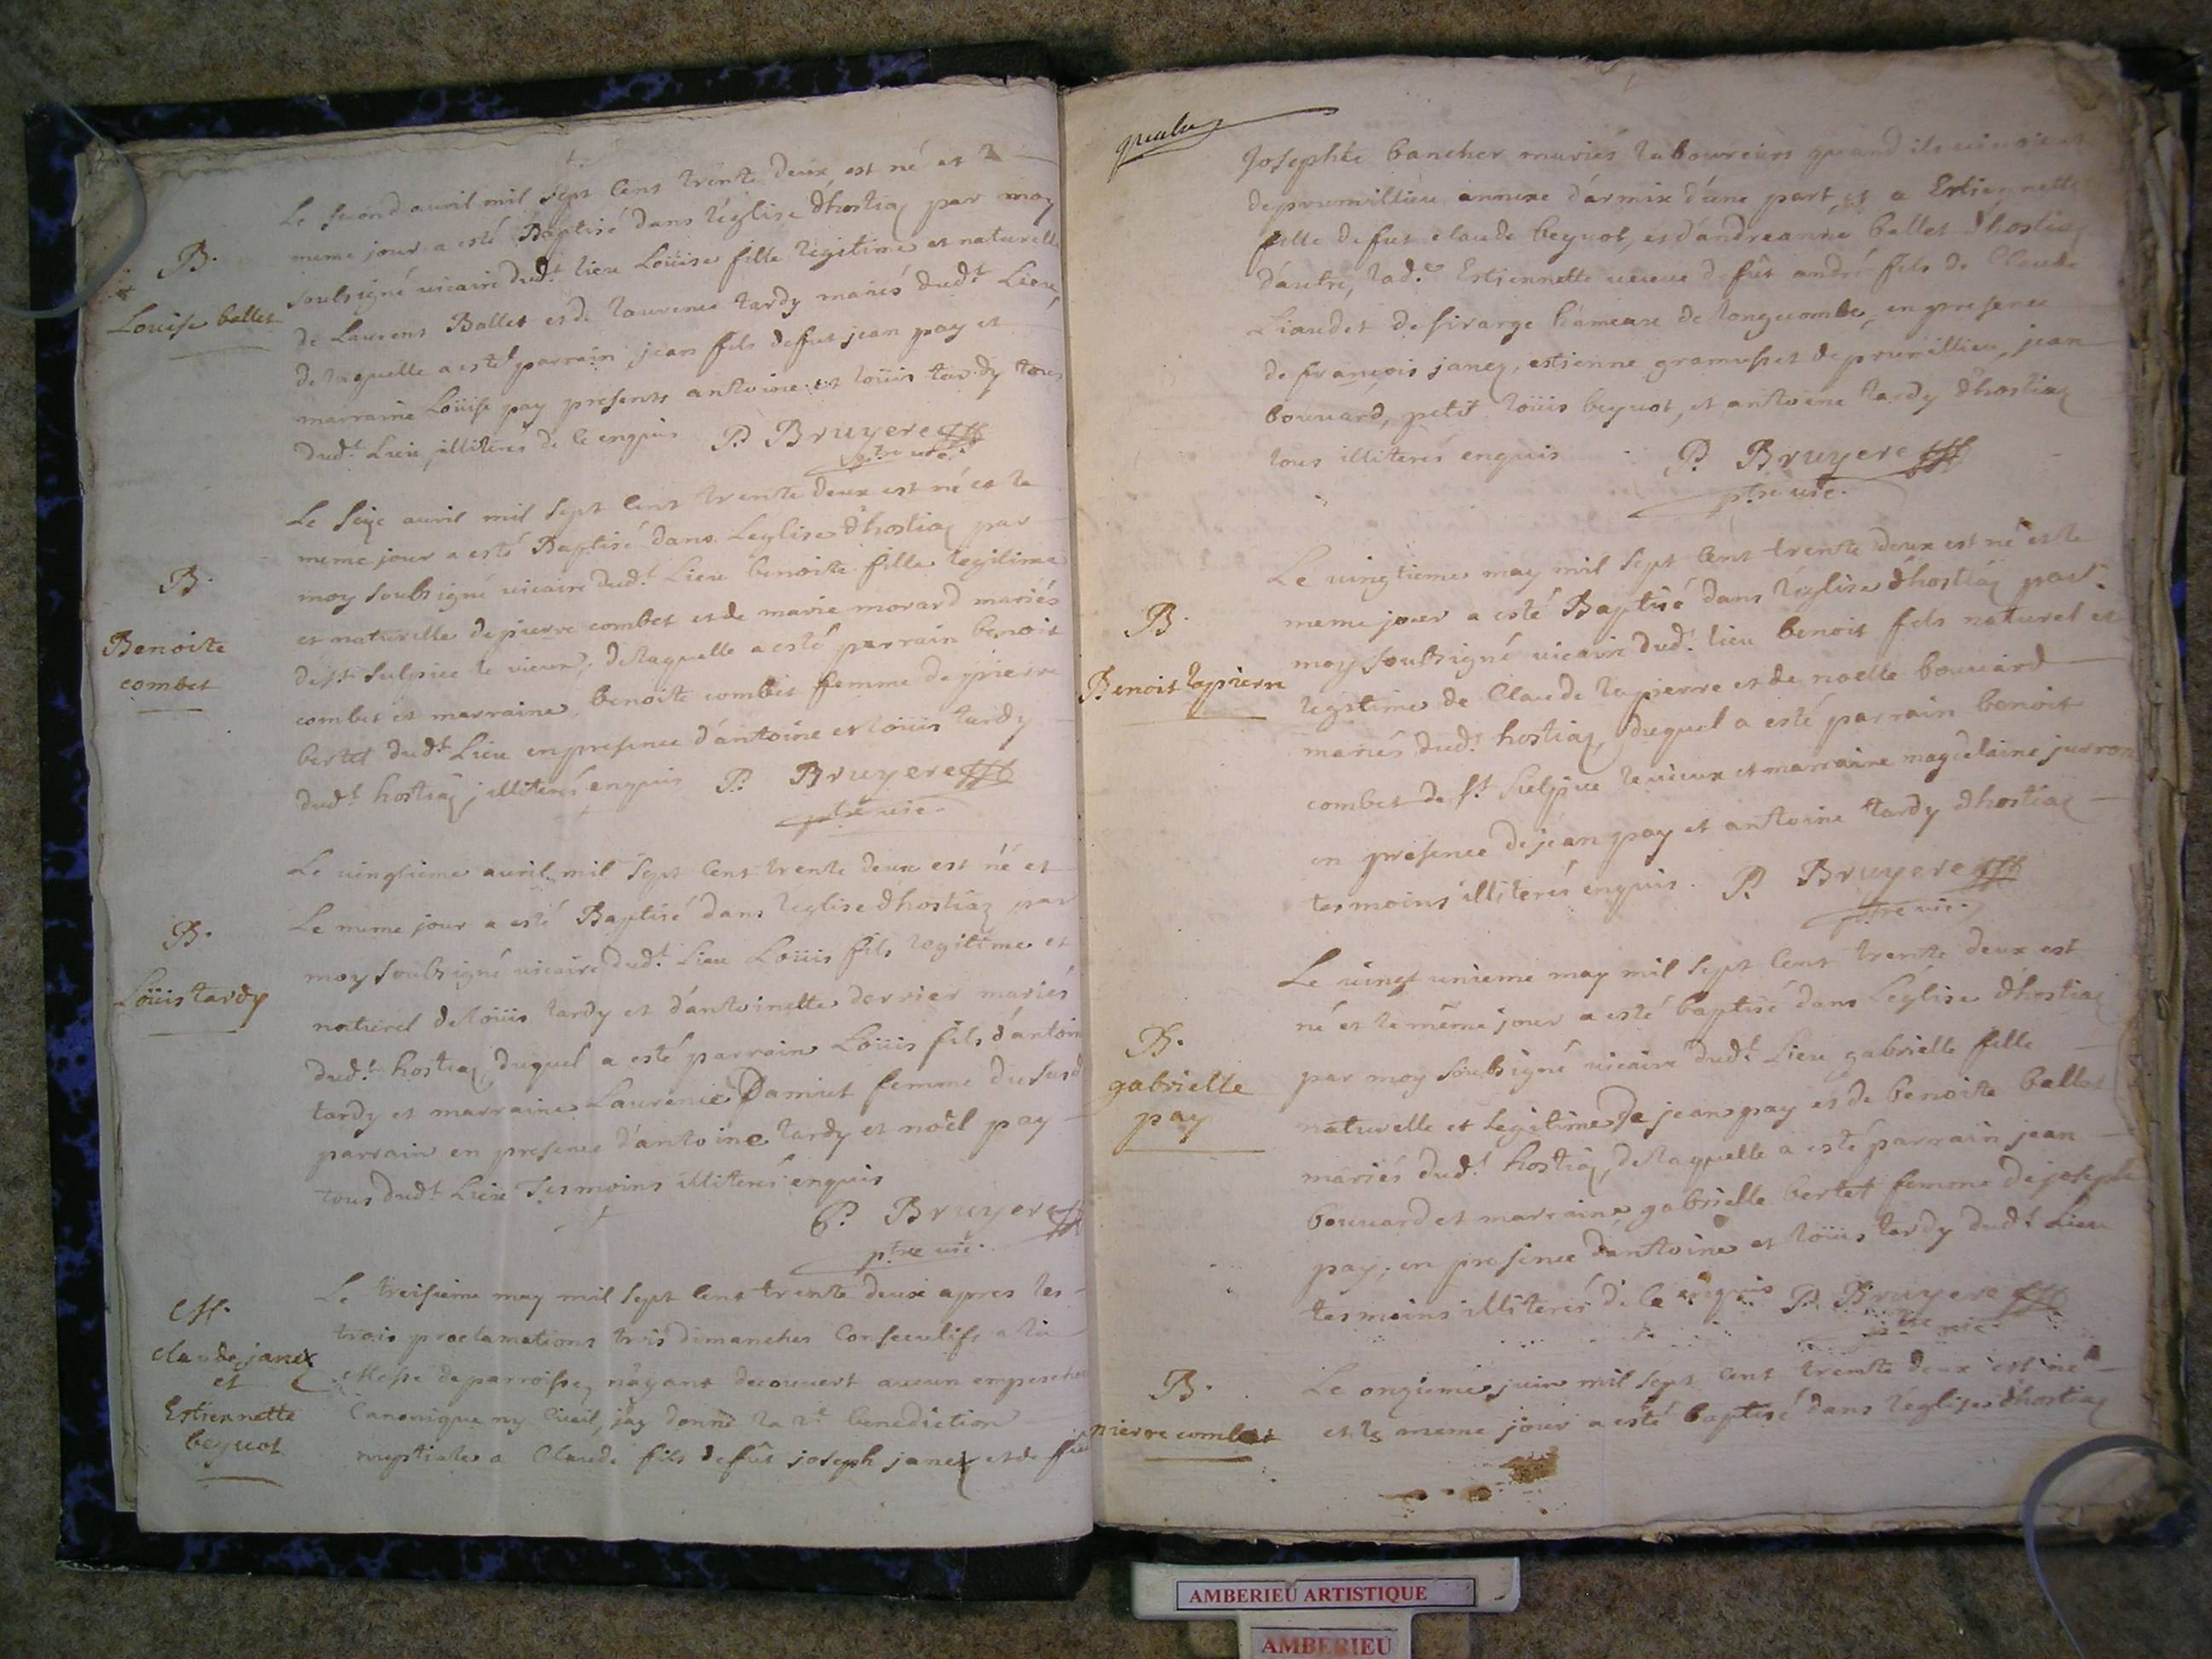 Le second avril mil sept cent trente deux est né et le
B.
meme jour a esté Baptisé dans l'église d'hostiaz par moy
soubsigné vicaire dudt lieu Loüise fille legitime et naturelle
Louise ballet
de Laurens Ballet et de laurence tardy mariés dudt Lieu,
de laquelle a esté parrain jean fils de fut jean pay et
marraine Loüise pay presents antoine et loüis tardy tous
dudt Lieu, illiterés de ce enquis P. Bruyere
ptre vic.
Le seize avril mil sept cent trente deux est né et le
meme jour a esté Baptisé dans Leglise d'hostiaz par
B.
moy soubsigné vicaire dudt Lieu benoite fille legitime
Benoite
combet
et naturelle de pierre combet et de marie morard mariés
de st sulpice le vieux, de laquelle a esté parrain benoit
combet et marraine benoite combet femme de pierre
bertet dudt Lieu en presence d'antoine et loüis tardy
dudt hostiaz illiterés enquis P. Bruyere
ptre vic.
Le vingtieme avril mil sept cent trente deux est né et
B.
Le meme jour a esté Baptisé dans l'église d'hostiaz par
moy soubsigné vicaire dudt Lieu Loüis fils legitime et
Loüis tardy
naturel de loüis tardy et d'antoinette derrier mariés
dudt hostiaz duquel a esté parrain Loüis fils d'antoine
tardy et marraine Laurence Damiet femme du susd
parrain en presence d'antoine tardy et noël pay
tous dudt Lieu Tesmoins illiterés enquis
P. Bruyere
ptre vic.
M.
Le treisieme may mil sept cent trente deux apres les
trois proclamations trois dimanches Consecutifs a la
claude janez
et
Estiennette
beguot
Messe de parroisse, n'ayant decouvert aucun empeschem
Canonique ny Civil, j'ay donné la bt benediction
nuptiale a Claude fils de fût joseph janez et de fut
Josephte bancher mariés laboureurs quand ils vivoient
de prumillieu annexe d'armix d'une part, et a Estiennette
fille de fut claude beguot, et d'andreanne ballet d'hostiaz
d'autre, lade Estiennette veuve de fût andré fils de Claude
Liaudet de sirarge hameaux de longecombe, en presence
de françois janez, estienne gramusset de prumillieu, jean
bouvard, petit loüis beguot, et antoine tardy d'hostiaz
tous illiterés enquis P. Bruyere
ptre vic.
Le vingtieme may mil sept cent trente deux est né et le
B.
meme jour a esté Baptisé dans l'église d'hostiaz par
moy soubsigné vicaire dudt lieu benoit fils naturel et
Benoit lapierre
legitime de Claude lapierre et de noelle bouvard
mariés dudt hostiaz duquel a esté parrain benoit
combet de st Sulpice le vieux et marraine magdelaine juvron
en presence de jean pay et antoine tardy d'hostiaz
tesmoins illiterés enquis. P. Bruyere
ptre vic.
Le vingt unieme may mil sept cent trente deux est
né et le même jour a esté baptisé dans L'église d'hostiaz
B.
gabrielle
pay
par moy soubsigné vicaire dudt Lieu gabrielle fille
naturelle et Legitime de jean pay et de benoite ballet
mariés dudt hostiaz, de laquelle a esté parrain jean
bouvard et marraine gabrielle bertet femme de joseph
pay, en presence d'antoine et loüis tardy dudt Lieu
tesmoins illiterés de ce enquis P. Bruyere
ptre vic.
B.
pierre combet
Le onzieme juin mil sept cent trente deux est né
et le meme jour a esté baptisé dans l'église d'hostiaz
AMBERIEU ARTISTIQUE
AMBERIEU